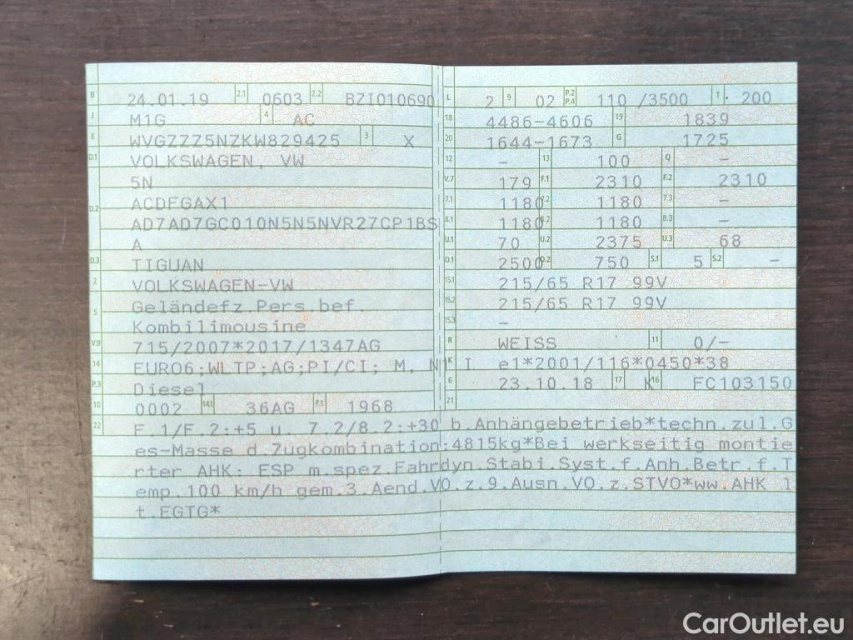 B 24.01.19 2.1 0603 2.2 BZI010690
J M1G 4 AC
E WVGZZZ5NZKW829425 3 X
D.1 VOLKSWAGEN, VW
5N
D.2 ACDFGAX1
AD7AD7GC010N5N5NVR27CP1BS
A
D.3 TIGUAN
2 VOLKSWAGEN-VW
Geländefz.Pers.bef.
5 Kombilimousine
V.9 715/2007*2017/1347AG
14 EURO6;WLTP;AG;PI/CI; M, N1 I
P.3 Diesel
10 0002 14.1 36AG P.1 1968
L 2 9 02 P.2 P.4 110 /3500 T 200
18 4486-4606 19 1839
20 1644-1673 G 1725
12 – 13 100 Q –
V.7 179 F.1 2310 F.2 2310
7.1 1180 7.2 1180 7.3 –
8.1 1180 8.2 1180 8.3 –
U.1 70 U.2 2375 U.3 68
O.1 2500 O.2 750 S.1 5 S.2 –
15.1 215/65 R17 99V
15.2 215/65 R17 99V
15.3 –
R WEISS 11 0/–
K e1*2001/116*0450*38
6 23.10.18 17 K 16 FC103150
21
22 F.1/F.2:+5 u. 7.2/8.2:+30 b.Anhängebetrieb*techn.zul.G
es-Masse d.Zugkombination:4815kg*Bei werkseitig montie
rter AHK: ESP m.spez.Fahrdyn.Stabi.Syst.f.Anh.Betr.f.T
emp.100 km/h gem.3.Aend.VO.z.9.Ausn.VO.z.STVO*ww.AHK l
t.EGTG*
CarOutlet.eu